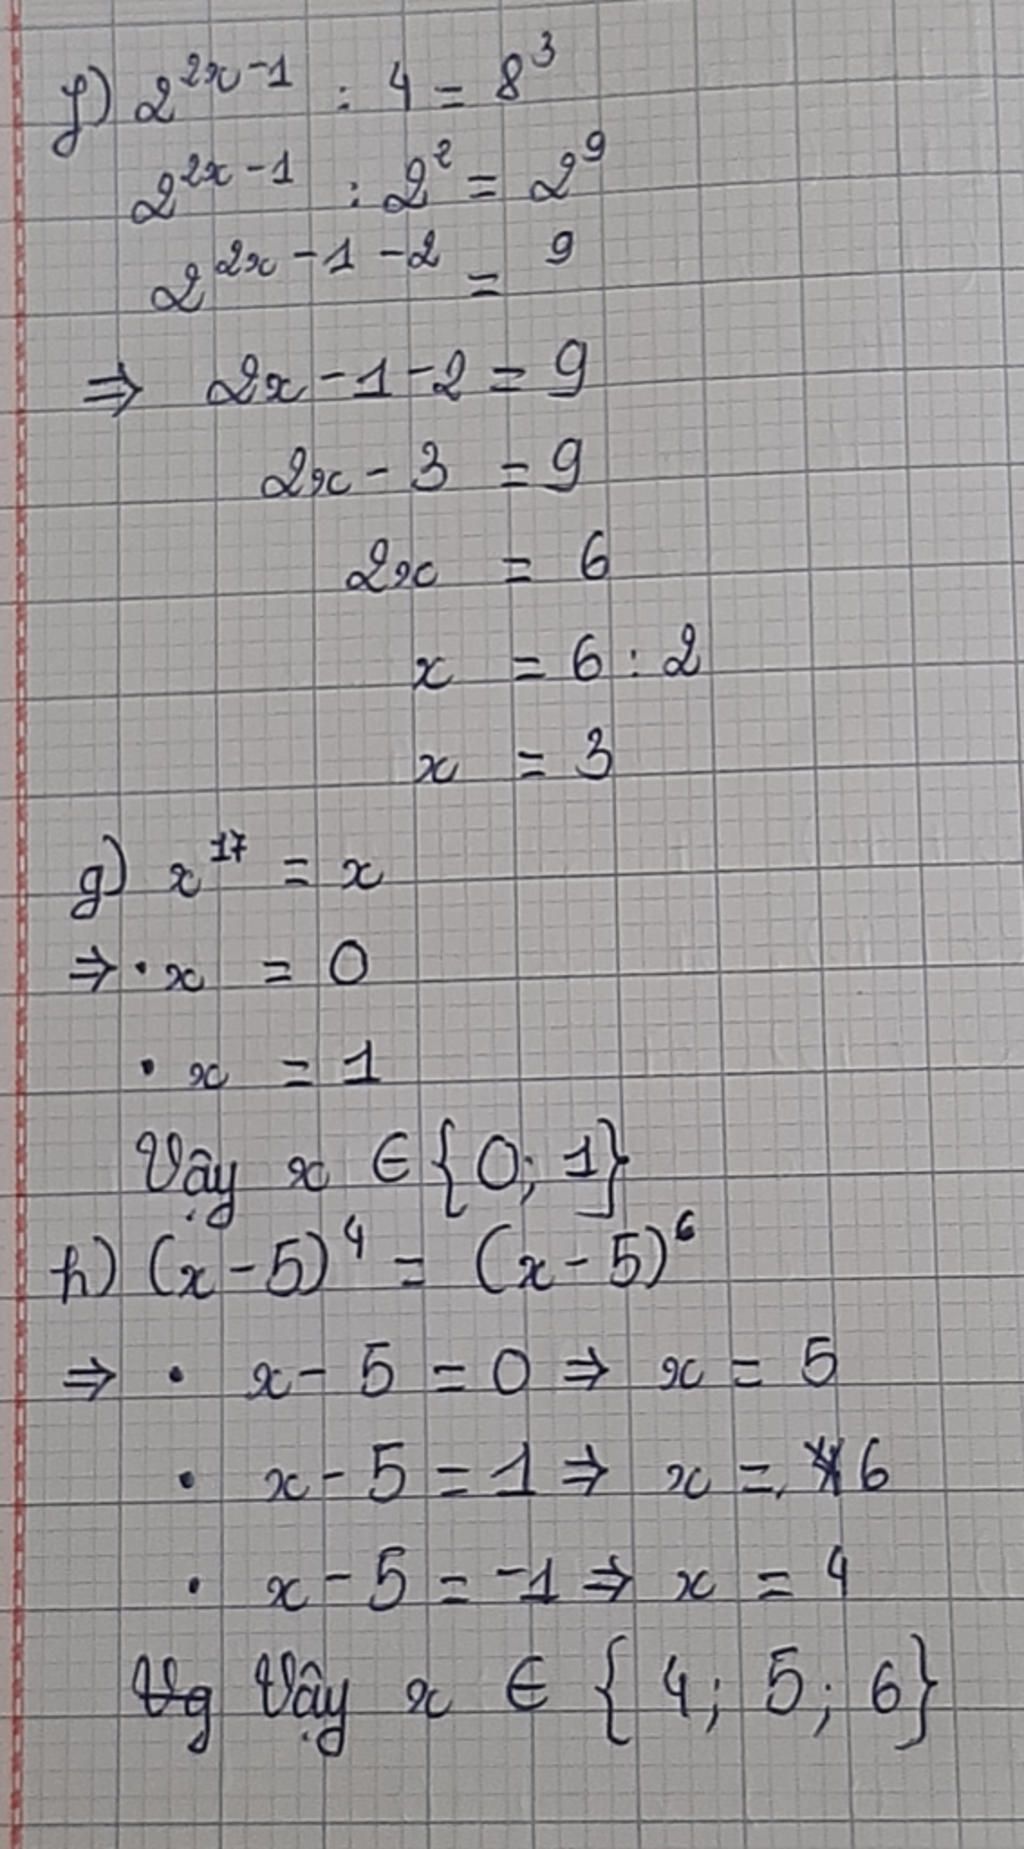 f) 2^{2x-1} : 4 = 8^3
2^{2x-1} : 2^2 = 2^9
2^{2x-1-2} = ^9
⇒ 2x - 1 - 2 = 9
2x - 3 = 9
2x = 6
x = 6 : 2
x = 3
g) x^{17} = x
⇒ • x = 0
• x = 1
Vậy x ∈ {0; 1}
h) (x - 5)^4 = (x - 5)^6
⇒ • x - 5 = 0 ⇒ x = 5
• x - 5 = 1 ⇒ x = 6
• x - 5 = -1 ⇒ x = 4
Vậy x ∈ {4; 5; 6}